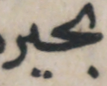 بحير